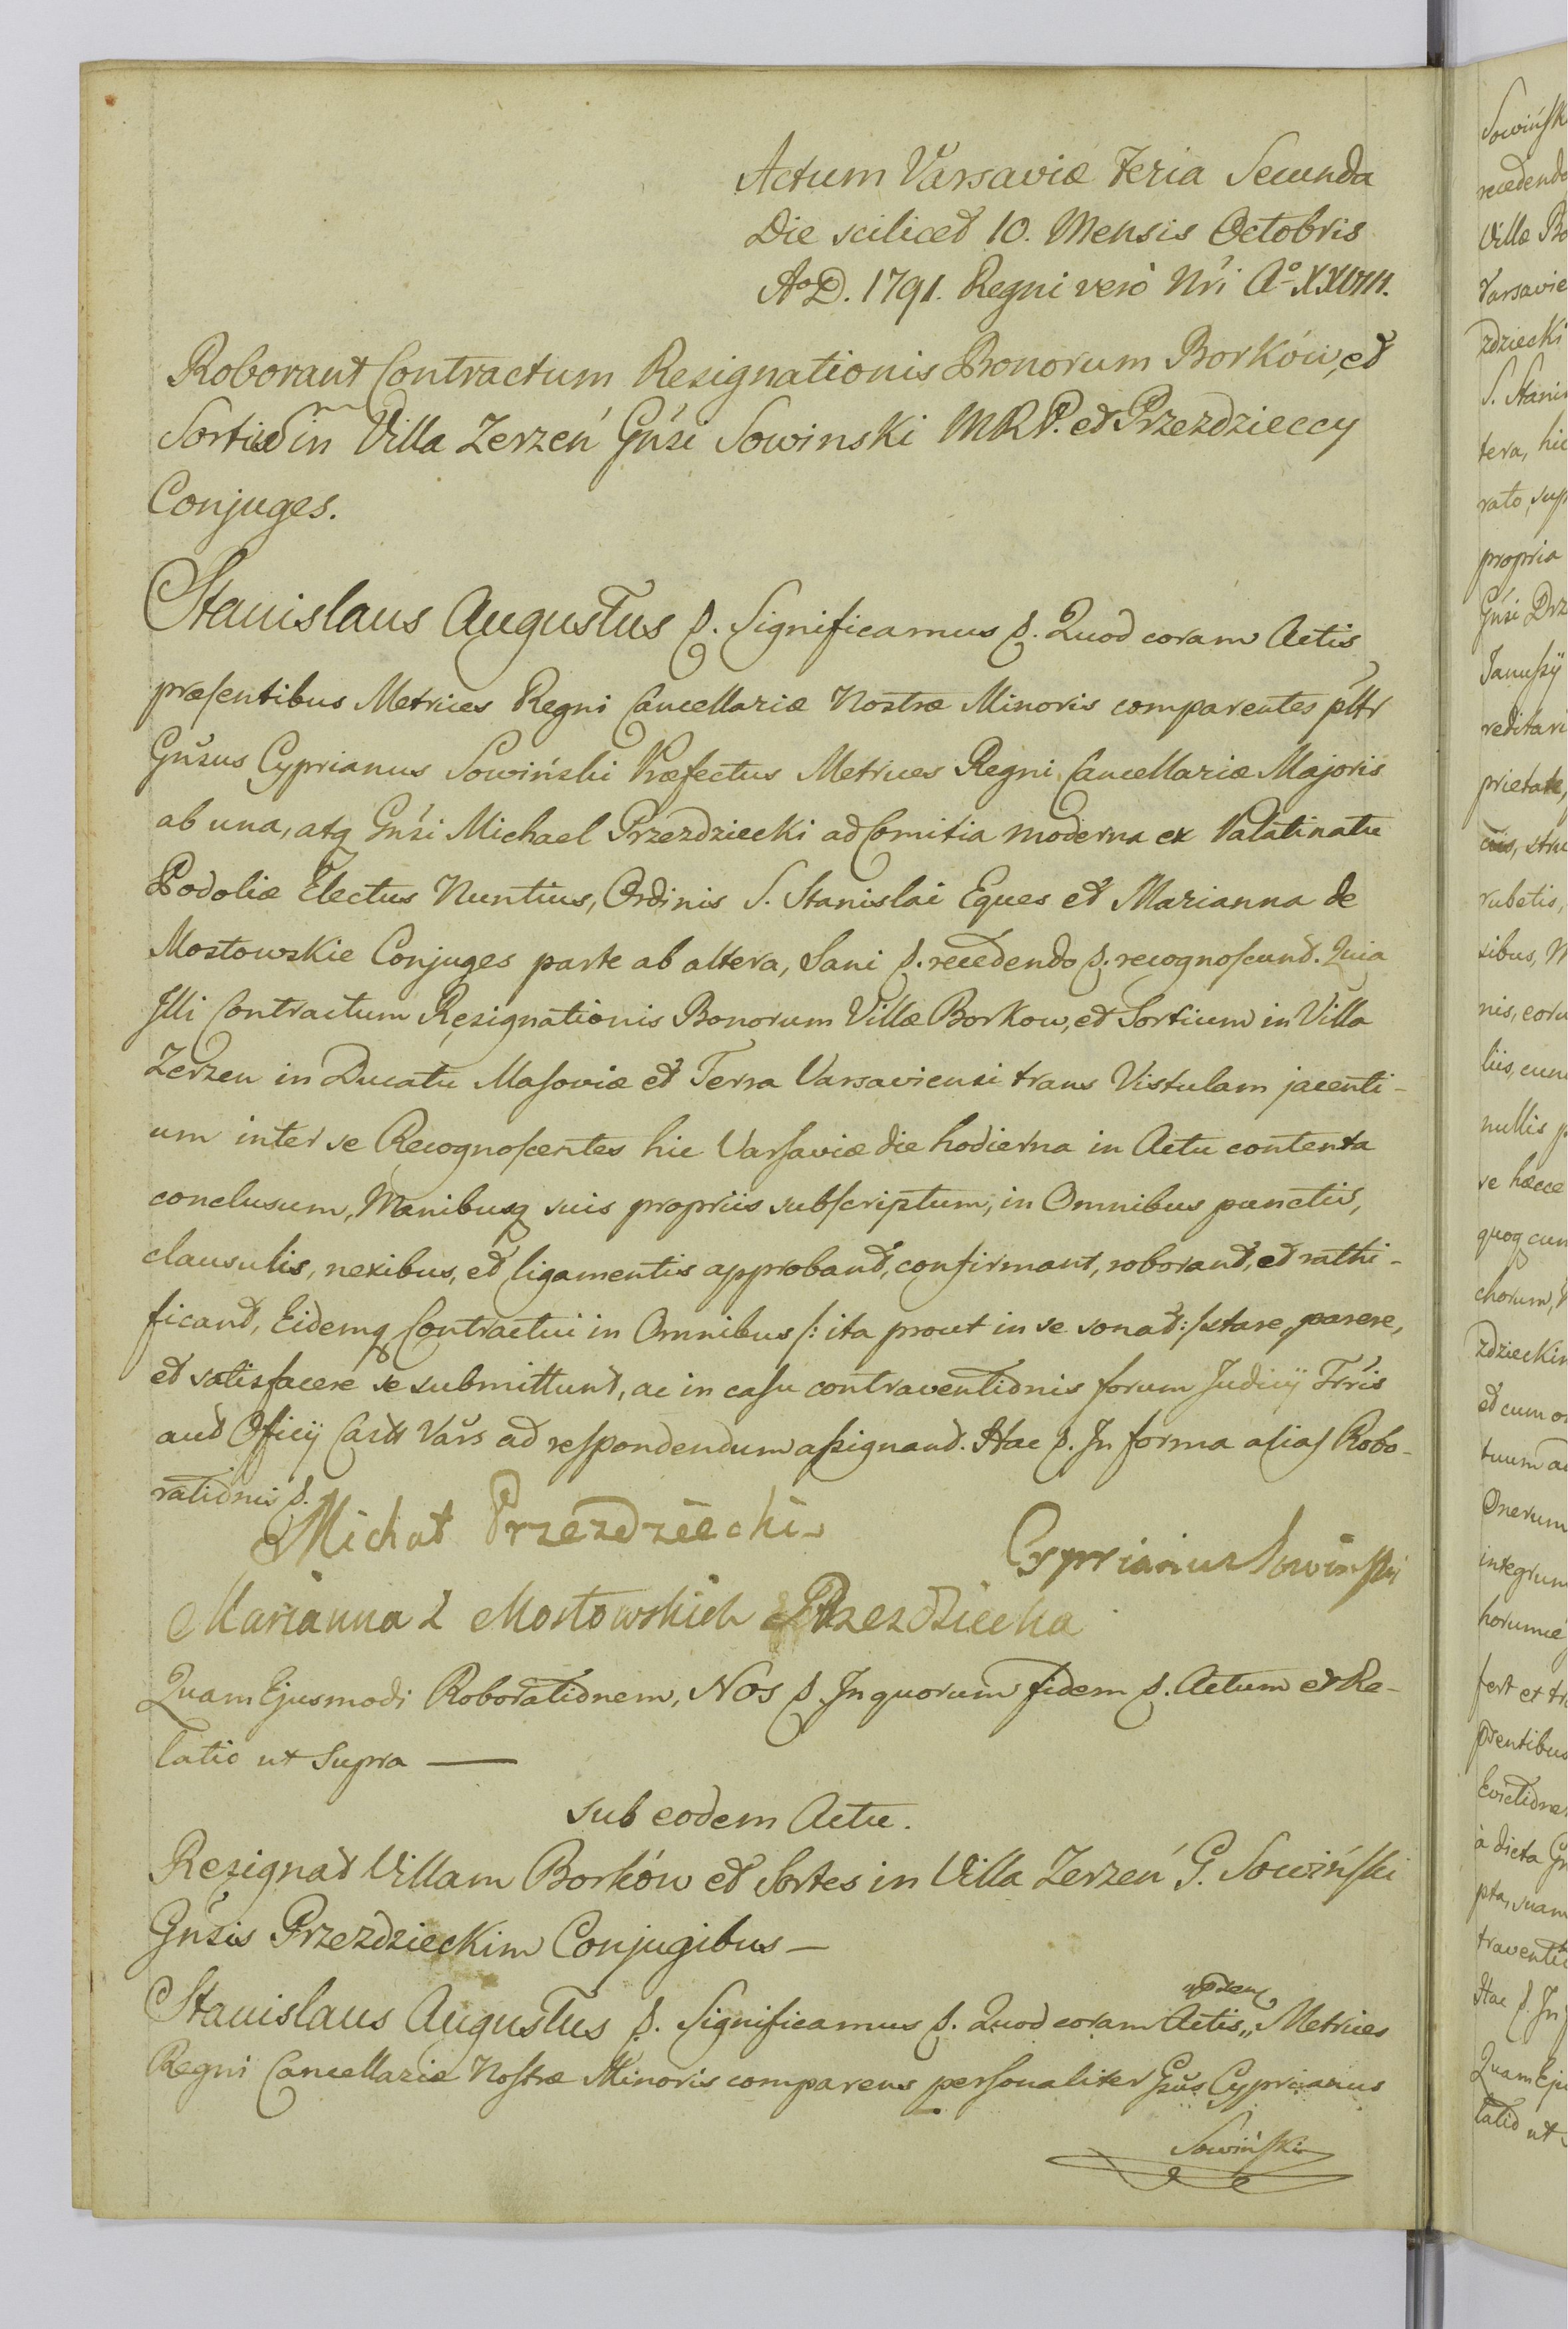 Actum Varsaviæ Feria Secunda
Die scilicet 10. Mensis Octobris
Ao D. 1791. Regni verò Nri Ao XXVIII.
Roborant Contractum Resignationis Bonorum Borków, et
Sortium in Villa Zerzeń Gńsi Sowinski MRP. et Przezdzieccy
Conjuges.
Stanislaus Augustus &. Significamus &. Quod coram Actis
præsentibus Metrices Regni Cancellariæ Nostræ Minoris comparentes pltr
Gnsus Cyprianus Sowiński Præfectus Metrices Regni Cancellariæ Majoris
ab una, atq Gńsi Michael Przezdziecki ad Comitia moderna ex Palatinatu
Podoliæ Electus Nuntius, Ordinis S. Stanislai Eques et Marianna de
Mostowskie Conjuges parte ab altera, Sani &. recedendo &. recognoscunt. Quia
Illi Contractum Resignationis Bonorum Villæ Borkow, et Sortium in Villa
Zerzen in Ducatu Masoviæ et Terra Varsaviensi trans Vistulam jacenti-
um inter se Recognoscentes hic Varsaviæ die hodierna in Actu contenta
conclusum, Manibusq suis propriis subscriptum, in Omnibus punctis,
clausulis, nexibus, et ligamentis approbant, confirmant, roborant, et rathi-
ficant, Eidemq Contractui in Omnibus /: ita prout in se sonat :/ stare, parere,
et satisfacere se submittunt, ac in casu contraventionis forum Judicij Trris
aut Officij Castr Vars ad respondendum assignant. Hac &. In forma alias Robo-
rationis &.
Michał Przezdziecki
Cyprianus Sowinski
Marianna z Mostowskich Przezdziecka
Quam Ejusmodi Roborationem, Nos &. In quorum fidem &. Actum et Re-
latio ut Supra —
Sub eodem Actu.
Resignat Villam Borków et Sortes in Villa Zerzeń G. Sowiński
Gńsis Przezdzieckim Conjugibus —
Stanislaus Augustus &. Significamus &. Quod coram Actis,, Metrices
Regni Cancellariæ Nostræ Minoris comparens personaliter Gnsus Cyprianus
Sowiński